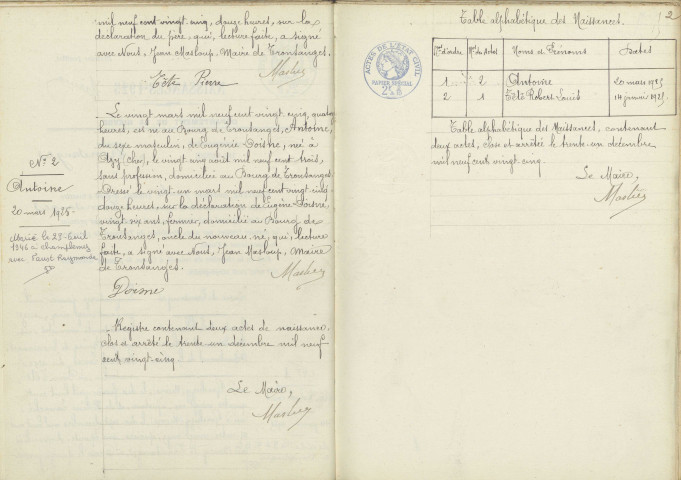 mil neuf cent vingt cinq, douze heures, sur la
déclaration du père, qui, lecture faite, a signé
avec Nous, Jean Masloup, Maire de Tronsanges.
Tête Pierre
Le vingt mars mil neuf cent vingt cinq, quatre
heures, est né au Bourg de Tronsanges, Antoine,
du sexe masculin, de Eugénie Doisne, née à
(Cher), le vingt avril mil neuf cent trois,
sans profession, domiciliée au Bourg de Tronsanges
Dressé le vingt un mars mil neuf cent vingt cinq
douze heures, sur la déclaration de Eugène Doisne,
vingt six ans, fermier, domicilié au Bourg de
Tronsanges, oncle du nouveau-né, qui, lecture
faite, a signé avec Nous, Jean Masloup, Maire
de Tronsanges.
Doisne
N° 2
Antoine
20 mars 1925
Marié le 23 Avril
1946 à Champlemy
avec Raymonde
Registre contenant deux actes de naissance,
clos et arrêté le trente un décembre mil neuf
cent vingt-cinq
Le Maire,
2
Table alphabétique des Naissances.
ACTES DE L'ÉTAT CIVIL
PAPIER SPÉCIAL
N° d'ordre N° des Actes Noms et Prénoms Dates
1 2 Antoine 20 mars 1925
2 1 Tête Robert Louis 14 janvier 1925
Table alphabétique des Naissances, contenant
deux actes, close et arrêtée le trente-un décembre
mil neuf cent vingt-cinq.
Le Maire,